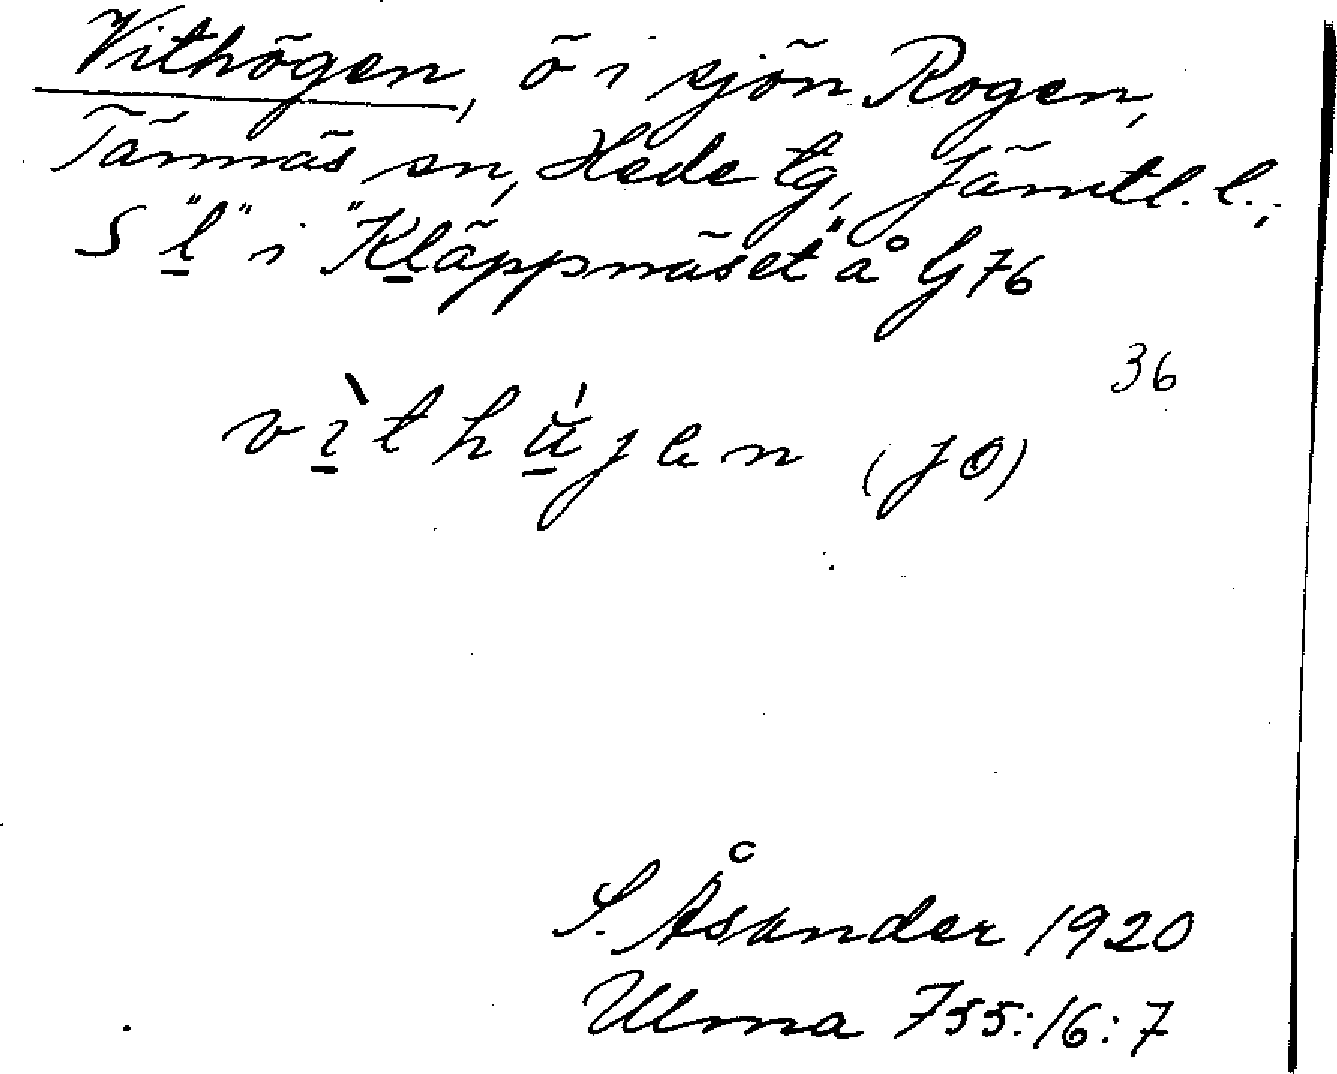 Vithögen, ö i sjön Rogen,
Tännäs sn, Hede tg, Jämtl. l.;
S "l" i "Kläppnäset" å G 76
36
vìthu̇́jen (JÖ)
S. Åsander 1920
Ulma 755:16:7